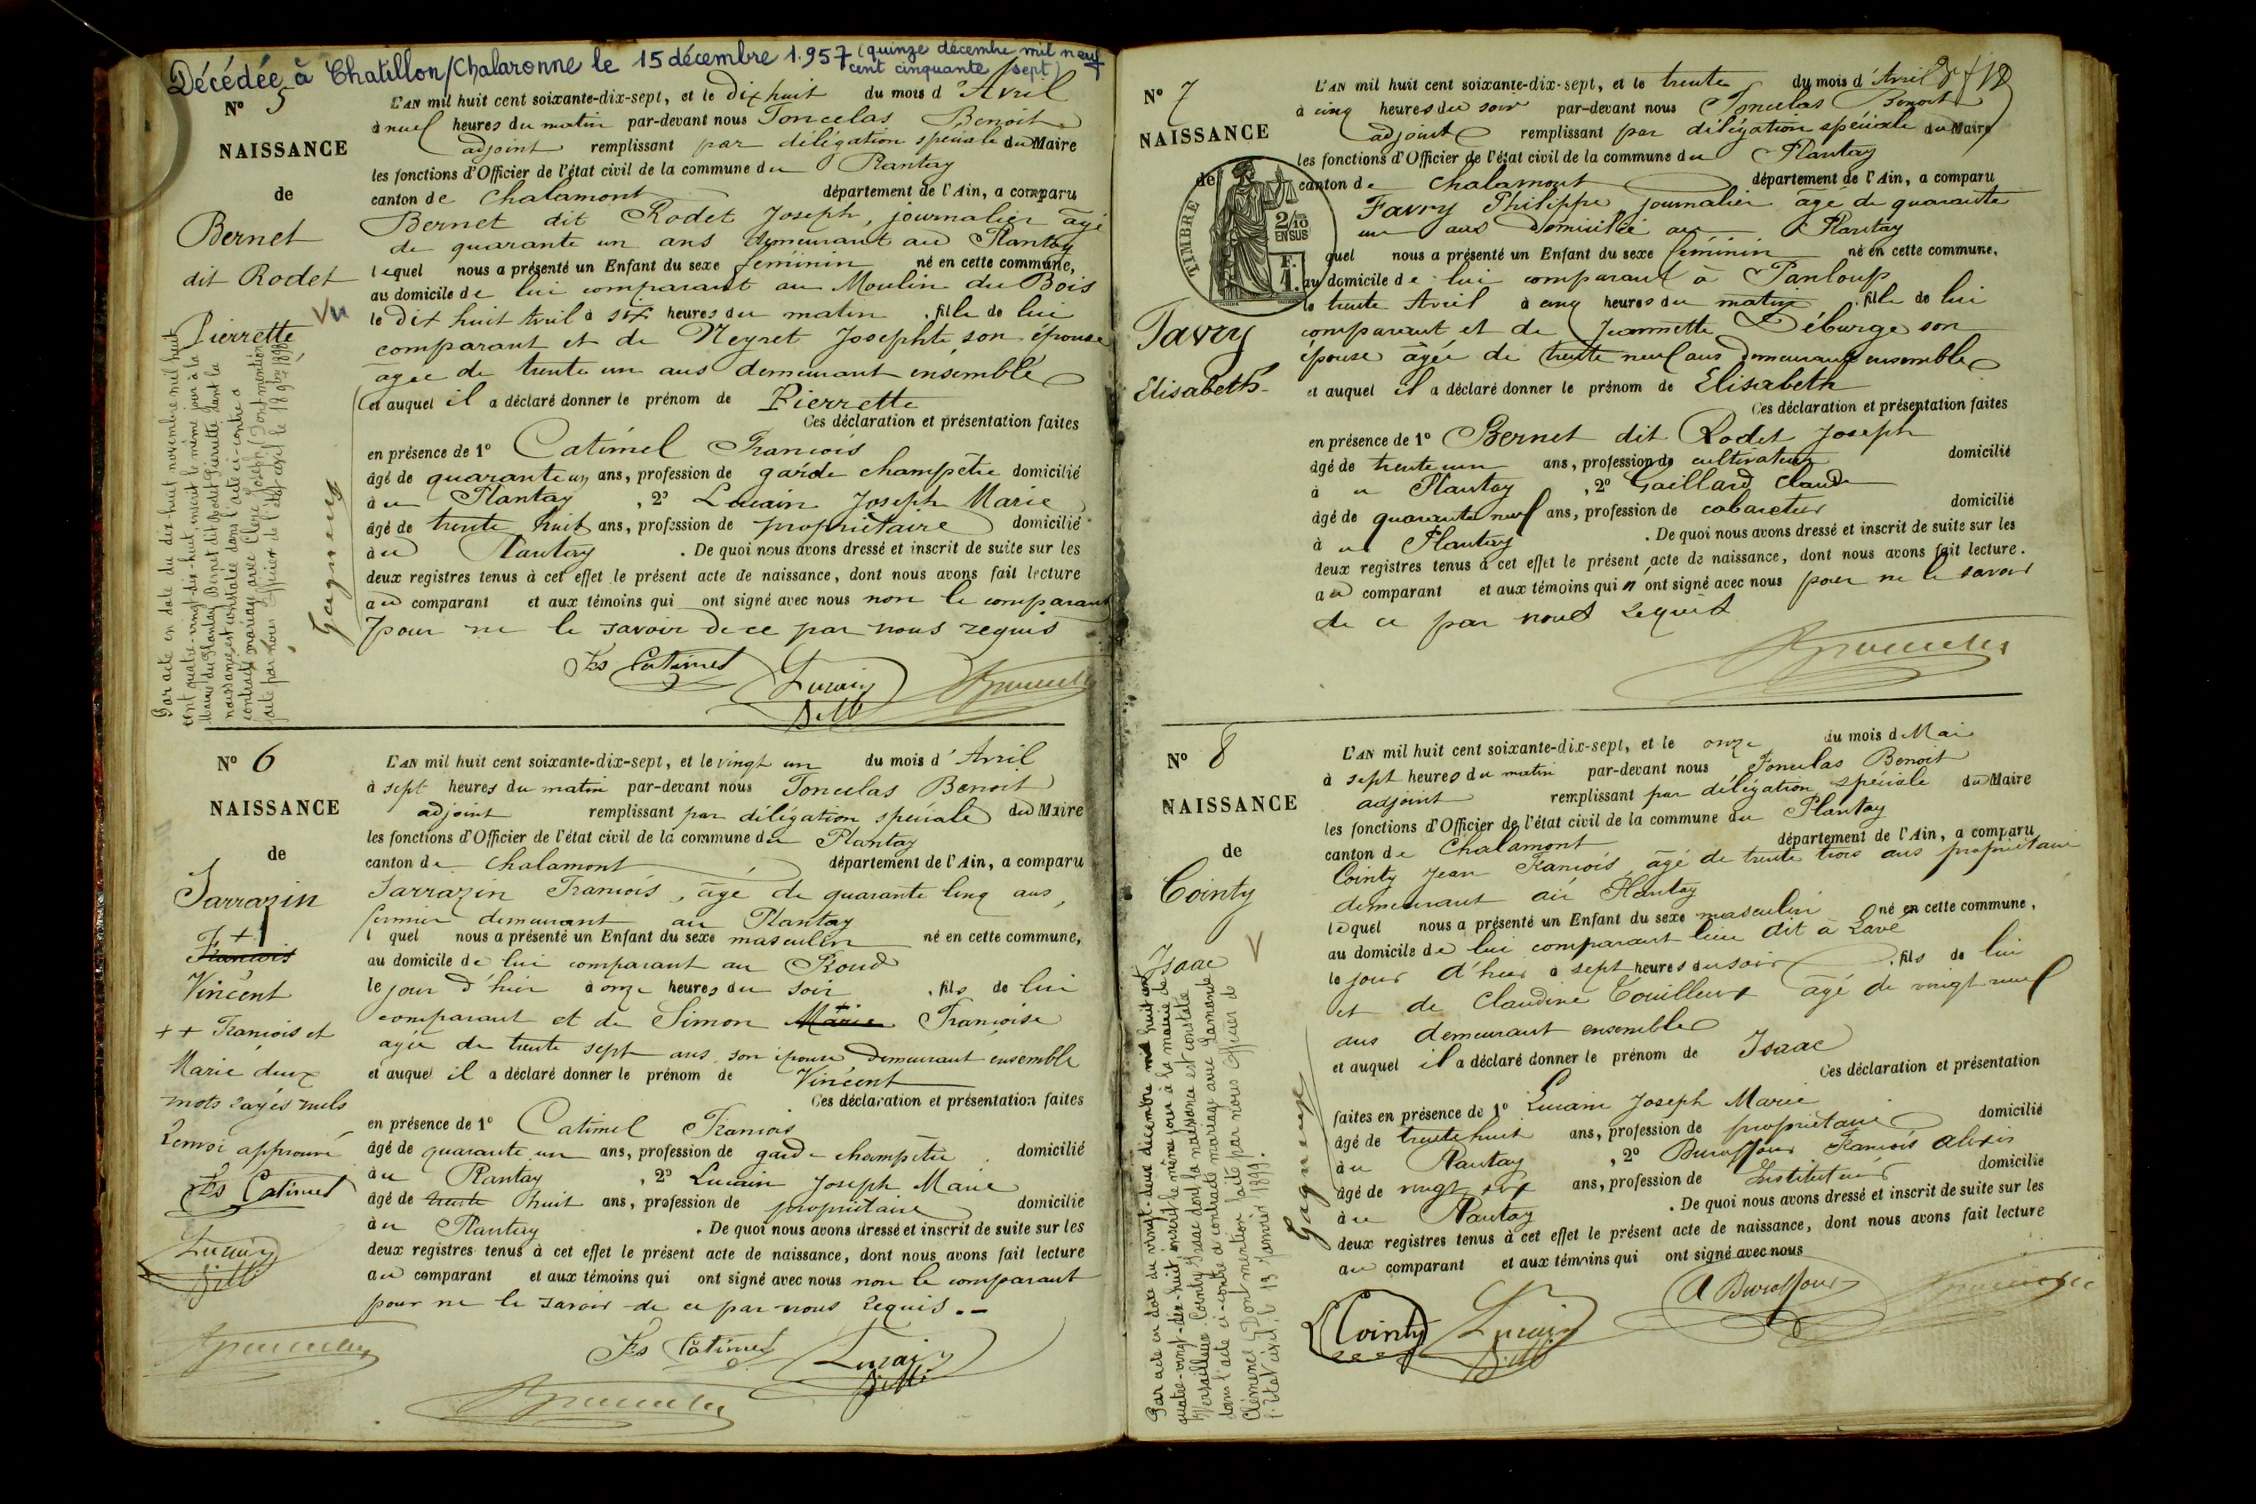 Décédée à Chatillon/Chalaronne le 15 décembre 1.957 (quinze décembre mil neuf
cent cinquante sept)
N° 5
NAISSANCE
de
Bernet
dit Rodet
Pierrette
Vu
L'AN mil huit cent soixante-dix-sept, et le dix huit du mois d'Avril
à neuf heures du matin par-devant nous Benoit
adjoint remplissant par délégation spéciale du Maire
les fonctions d'Officier de l'état civil de la commune du Plantay
canton de Chalamont département de l'Ain, a comparu
Bernet dit Rodet Joseph, journalier âgé
de quarante un ans demeurant au Plantay
lequel nous a présenté un Enfant du sexe féminin né en cette commune,
au domicile de lui comparant au Moulin du Bois
le dix huit Avril à six heures du matin, fille de lui
comparant et de Neyret Josephte son épouse
agée de trente un ans demeurant ensemble
et auquel il a déclaré donner le prénom de Pierrette
Ces déclaration et présentation faites
en présence de 1° Catimel Francois
âgé de quarante un ans, profession de garde champêtre domicilié
au Plantay, 2° Joseph Marie
âgé de trente huit ans, profession de propriétaire domicilié
au Plantay. De quoi nous avons dressé et inscrit de suite sur les
deux registres tenus à cet effet le présent acte de naissance, dont nous avons fait lecture
au comparant et aux témoins qui ont signé avec nous non le comparant
pour ne le savoir de ce par nous requis
Fs Catimel
Par acte en date du dix-huit novembre mil huit
cent quatre-vingt-dix-huit inscrit le même jour à la
Mairie du Plantay Bernet dit Rodet Pierrette dont la
naissance est constatée dans l'acte ci-contre a
contracté mariage avec Clerc Joseph. Dont mention
faite par nous Officier de l'état civil le 18 9bre 1898.
Gagneux
N° 6
NAISSANCE
de
Sarrazin
Francois
Vincent
++ Francois et
Marie deux
mots rayés nuls
Renvoi approuvé
Fs Catimel
L'AN mil huit cent soixante-dix-sept, et le vingt un du mois d'Avril
à sept heures du matin par-devant nous Benoit
adjoint remplissant par délégation spéciale du Maire
les fonctions d'Officier de l'état civil de la commune du Plantay
canton de Chalamont département de l'Ain, a comparu
Sarrazin Francois, âgé de quarante cinq ans,
fermier demeurant au Plantay
l quel nous a présenté un Enfant du sexe masculin né en cette commune,
au domicile de lui comparant au
le jour d'hier à onze heures du soir, fils de lui
comparant et de Simon Marie Francoise
agée de trente sept ans son épouse demeurant ensemble
et auquel il a déclaré donner le prénom de Vincent
Ces déclaration et présentation faites
en présence de 1° Catimel Francois
âgé de quarante un ans, profession de garde champêtre domicilié
au Plantay, 2° Joseph Marie
âgé de trente huit ans, profession de propriétaire domicilié
au Plantay. De quoi nous avons dressé et inscrit de suite sur les
deux registres tenus à cet effet le présent acte de naissance, dont nous avons fait lecture
au comparant et aux témoins qui ont signé avec nous non le comparant
pour ne le savoir de ce par nous requis. -
Fs Catimel
N° 7
NAISSANCE
de
TIMBRE
2/10
EN SUS
Favry
Elisabeth
L'AN mil huit cent soixante-dix-sept, et le trente du mois d'Avril
à cinq heures du soir par-devant nous Benoit
adjoint remplissant par délégation spéciale du Maire
les fonctions d'Officier de l'état civil de la commune du Plantay
canton de Chalamont département de l'Ain, a comparu
Favry Philippe journalier âgé de quarante
un ans domicilié au Plantay
quel nous a présenté un Enfant du sexe féminin né en cette commune,
au domicile de lui comparant à Panloup
le trente Avril à cinq heures du matin, fille de lui
comparant et de Jeannette Déburge son
épouse âgée de trente neuf ans demeurant ensemble
et auquel il a déclaré donner le prénom de Elisabeth
Ces déclaration et présentation faites
en présence de 1° Bernet dit Rodet Joseph
âgé de trente un ans, profession de cultivateur domicilié
à u Plantay, 2° Gaillard Claude
âgé de quarante neuf ans, profession de cabaretier domicilié
à u Plantay. De quoi nous avons dressé et inscrit de suite sur les
deux registres tenus à cet effet le présent acte de naissance, dont nous avons fait lecture.
au comparant et aux témoins qui n'ont signé avec nous pour ne le savoir
de ce par nous requis
N° 8
NAISSANCE
de
Cointy
Isaac
V
L'AN mil huit cent soixante-dix-sept, et le onze du mois de Mai
à sept heures du matin par-devant nous Benoit
adjoint remplissant par délégation spéciale du Maire
les fonctions d'Officier de l'état civil de la commune du Plantay
canton de Chalamont département de l'Ain, a comparu
Cointy Jean Francois, âgé de trente trois ans propriétaire
demeurant au Plantay
lequel nous a présenté un Enfant du sexe masculin né en cette commune,
au domicile de lui comparant lieu dit à Lavé
le jour d'hier à sept heures du soir, fils de lui
et de Claudine agé de vingt neuf
ans demeurant ensemble
et auquel il a déclaré donner le prénom de Isaac
Ces déclaration et présentation
faites en présence de 1° Joseph Marie
âgé de trente huit ans, profession de propriétaire domicilié
à u Plantay, 2° Francois Alexis
âgé de vingt six ans, profession de Instituteur domicilié
à u Plantay. De quoi nous avons dressé et inscrit de suite sur les
deux registres tenus à cet effet le présent acte de naissance, dont nous avons fait lecture
au comparant et aux témoins qui ont signé avec nous
Cointy
Par acte en date du vingt-deux décembre mil huit cent
quatre-vingt-dix-huit inscrit le même jour à la mairie de
Versailleux Cointy Isaac dont la naissance est constatée
dans l'acte ci-contre a contracté mariage avec
Clémence. Dont mention faite par nous Officier de
l'état civil, le 13 Janvier 1899.
Gagneux